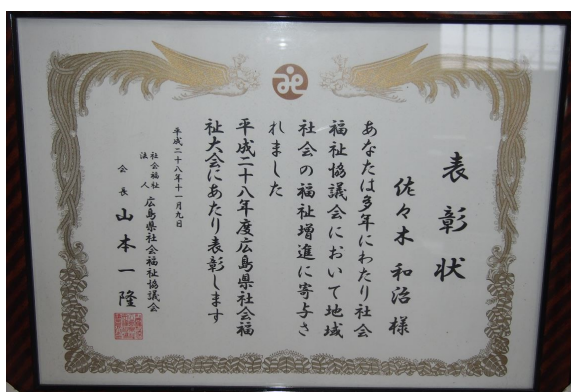 表彰状
佐々木 和治 様
あなたは多年にわたり社会
福祉協議会において地域
社会の福祉増進に寄与さ
れました
平成二十八年度広島県社会福
祉大会にあたり表彰します
平成二十八年十一月九日
社会福祉法人 広島県社会福祉協議会
会長 山本一隆